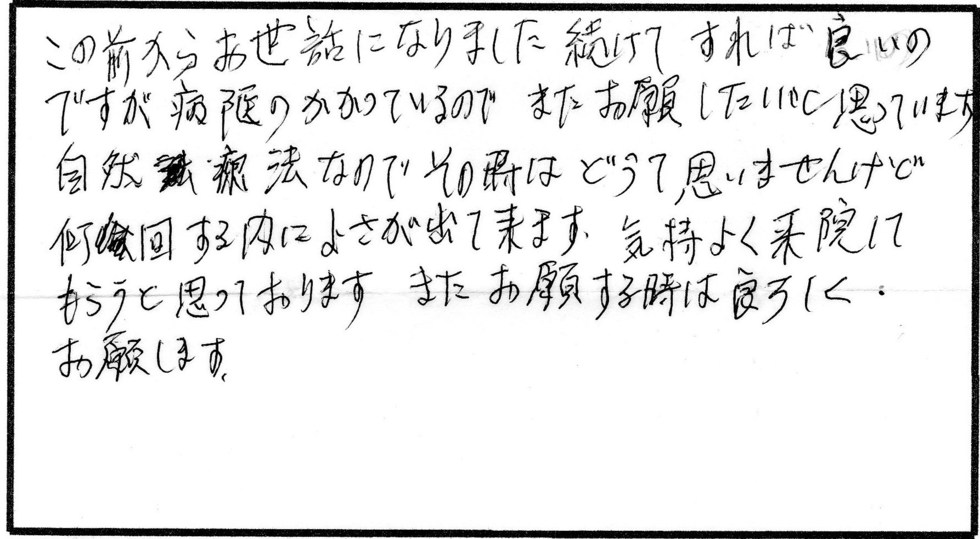 この前からお世話になりました 続けて すれば 良いの
ですが 病医のかかっているので またお願したいと思っています
自然 療法なのでその時はどうて思いませんけど
何回する内によさが出て来ます. 気持よく来院して
もらうと思っております またお願する時は良ろしく.
お願します.